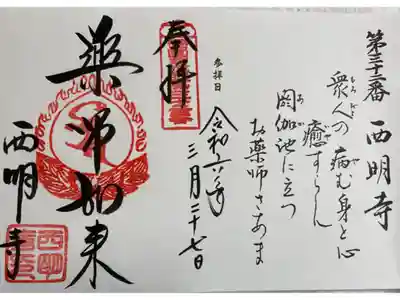 第三十三番 西明寺
衆人の病む身と心
もろびと
癒すらん
閼伽池に立つ
お薬師さあま
参拝日
令和六年
三月二十七日
奉拝
薬师如来
西明寺